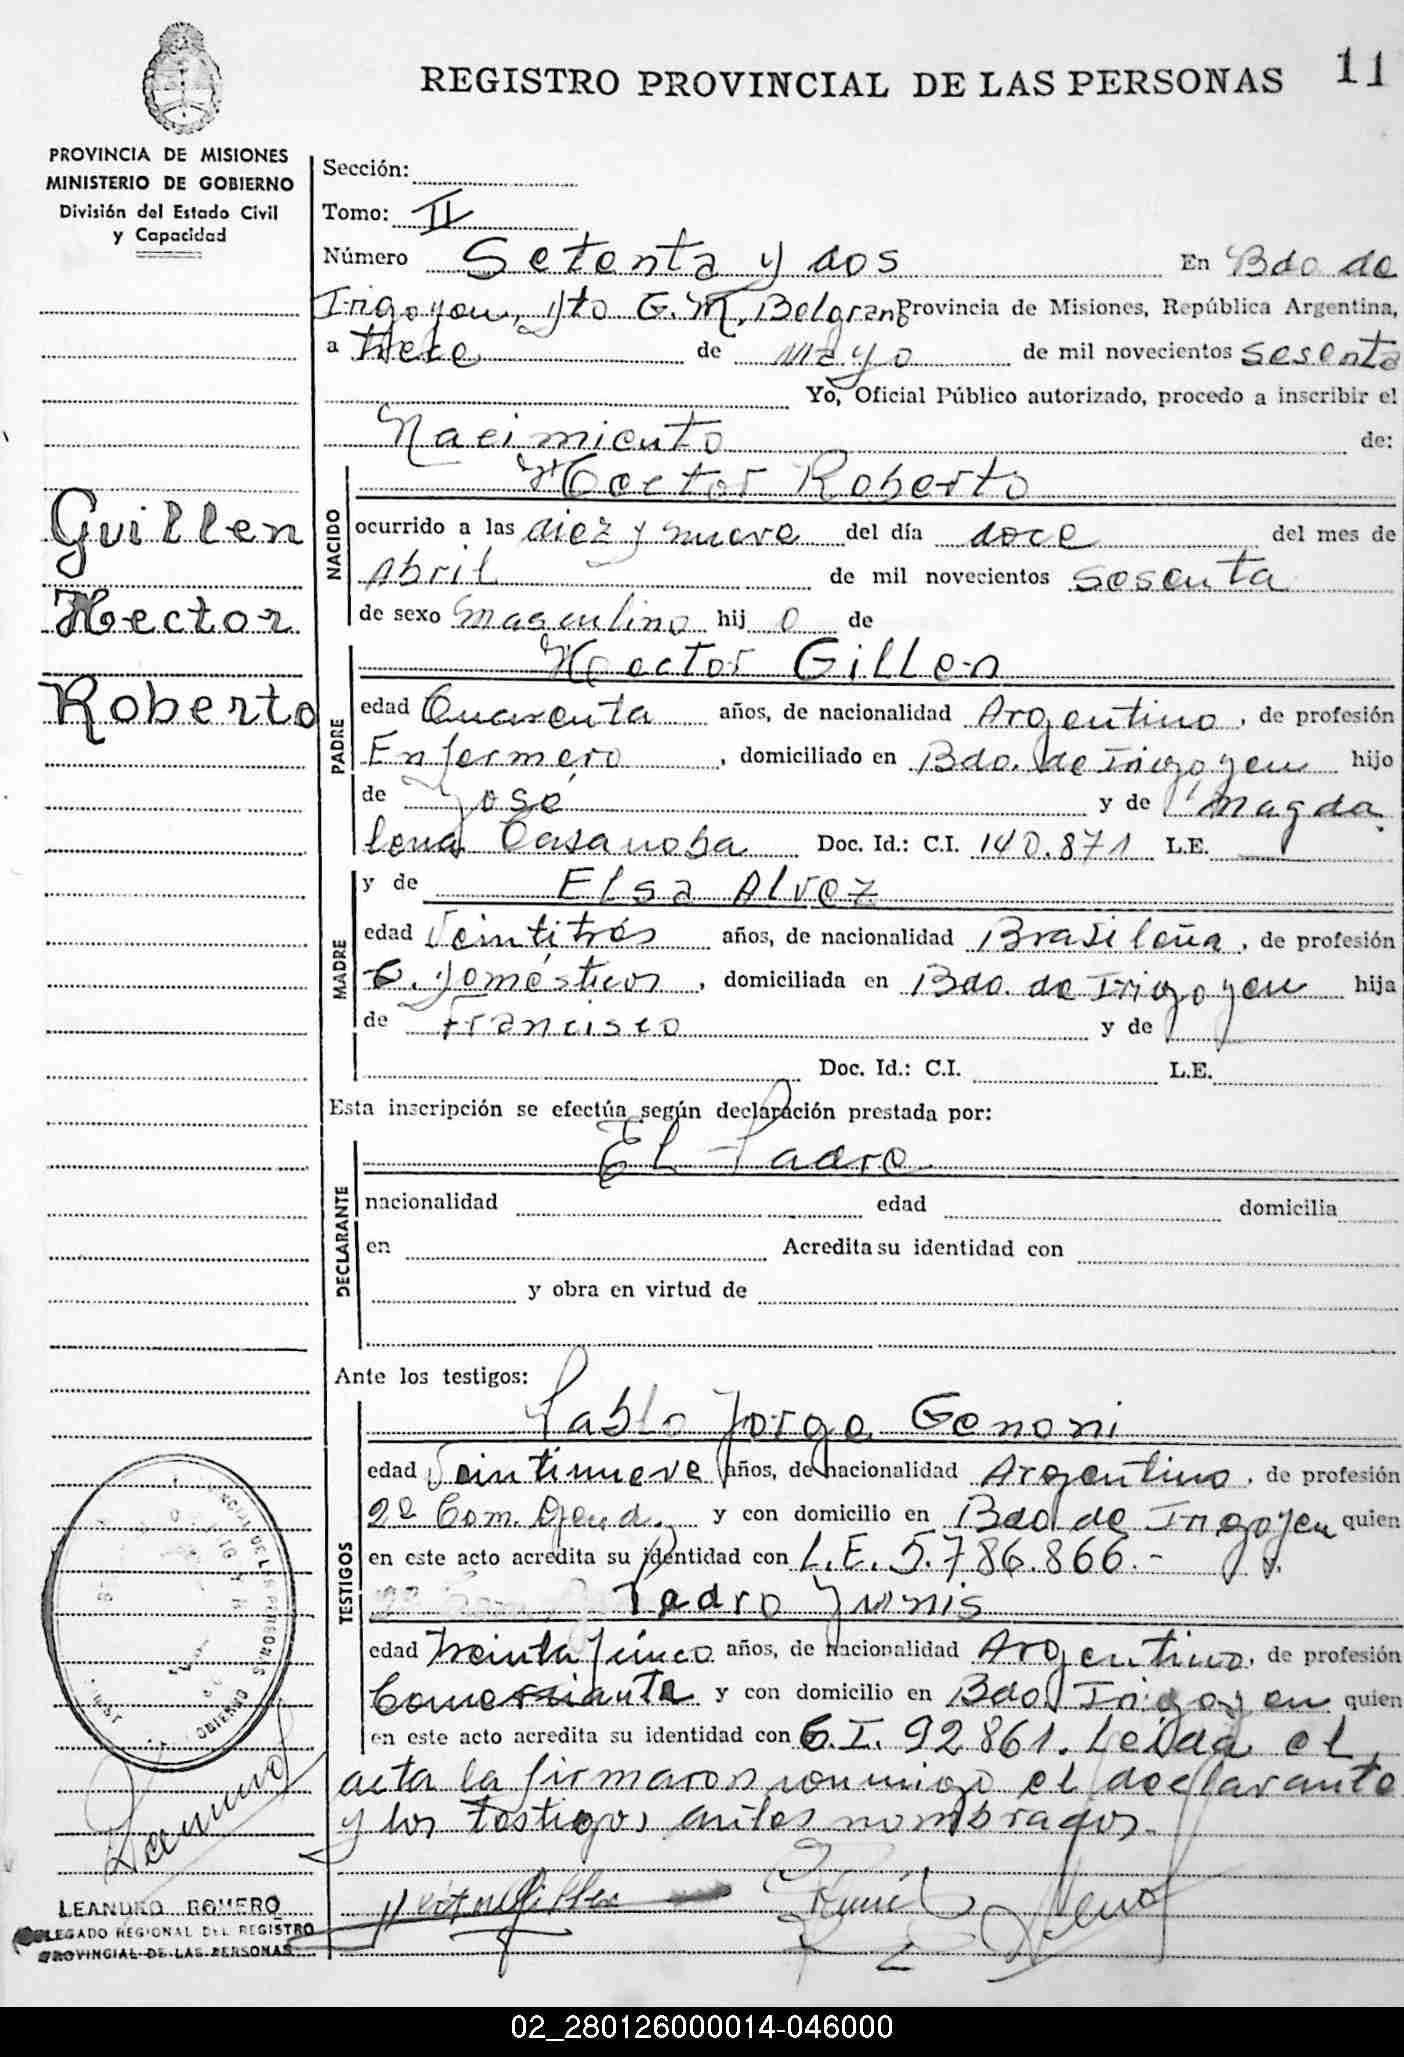 REGISTRO PROVINCIAL DE LAS PERSONAS 11
PROVINCIA DE MISIONES
MINISTERIO DE GOBIERNO
División del Estado Civil
y Capacidad
Sección:
Tomo: II
Número Setenta y dos En Bdo de
Irigoyen, Dto G. M. Belgrano Provincia de Misiones, República Argentina,
a trece de Mayo de mil novecientos sesenta
Yo, Oficial Público autorizado, procedo a inscribir el
Nacimiento de:
Guillen
Hector
Roberto
NACIDO
Hector Roberto
ocurrido a las diez y nueve del día doce del mes de
Abril de mil novecientos sesenta
de sexo Masculino hij o de
PADRE
Hector Gillen
edad Cuarenta años, de nacionalidad Argentino, de profesión
Enfermero, domiciliado en Bdo. de Irigoyen hijo
de José y de Magda
lena Casanoba Doc. Id.: C.I. 140.871 L.E.
MADRE
y de Elsa Alvez
edad Veintitrés años, de nacionalidad Brasileña, de profesión
Q. Domésticos, domiciliada en Bdo. de Irigoyen hija
de Francisco y de
Doc. Id.: C.I. L.E.
Esta inscripción se efectúa según declaración prestada por:
DECLARANTE
El Padre
nacionalidad edad domicilia
en Acredita su identidad con
y obra en virtud de
Ante los testigos:
TESTIGOS
Pablo Jorge Genoni
edad Veintinueve años, de nacionalidad Argentino, de profesión
2º Com. Gend. y con domicilio en Bdo de Irigoyen quien
en este acto acredita su identidad con L.E. 5.786.866.-
Pedro Yunis
edad Treinta y cinco años, de nacionalidad Argentino, de profesión
Comerciante y con domicilio en Bdo Irigoyen quien
en este acto acredita su identidad con C.I. 92861. Leída el
acta la firmaron conmigo el declarante
y los testigos antes nombrados.
LEANDRO ROMERO
DELEGADO REGIONAL DEL REGISTRO
PROVINCIAL DE LAS PERSONAS
02_280126000014-046000